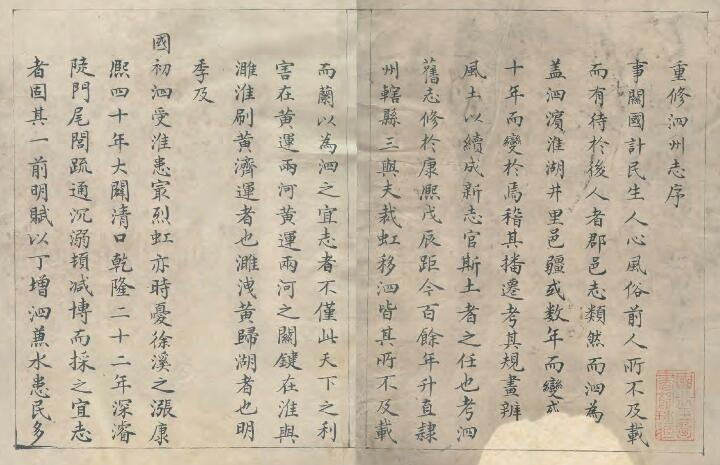 重修泗州志序
事關國計民生人心風俗前人所不及載
而有待於後人者郡邑志類然而泗為
盖泗濱淮湖井里邑疆或数年而變或
十年而變於焉稽其播遷考其規畫辨
風土以續成新志官斯土者之任也考泗
舊志修於康熙戊辰距今百餘年升直隸
州轄縣三與夫裁虹移泗皆其所不及載
而蘭以為泗之宜志者不僅此天下之利
害在黄運兩河黄運兩河之關鍵在淮與
濉淮刷黄濟運者也濉洩黄歸湖者也明
季及
國初泗受淮患寂烈虹亦時憂徐溪之漲康
熙四十年大闢清口乾隆二十二年深濬
陡門尾閭疏通沉溺頓减博而採之宜志
者固其一前明賦以丁增泗蒹水患民多